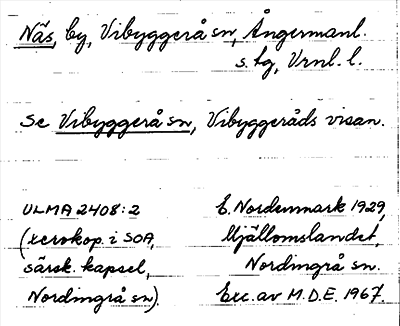 Näs, by, Vibyggerå sn, Ångermanl.
s. tg, Vrnl. l.
Se Vibyggerå sn, Vibyggeråds visan.
ULMA 2408:2
(xerokop. i SOA,
särsk. kapsel,
Nordingrå sn).
E. Nordenmark 1929,
Mjällomslandet,
Nordingrå sn.
Exc. av M.D.E. 1967.